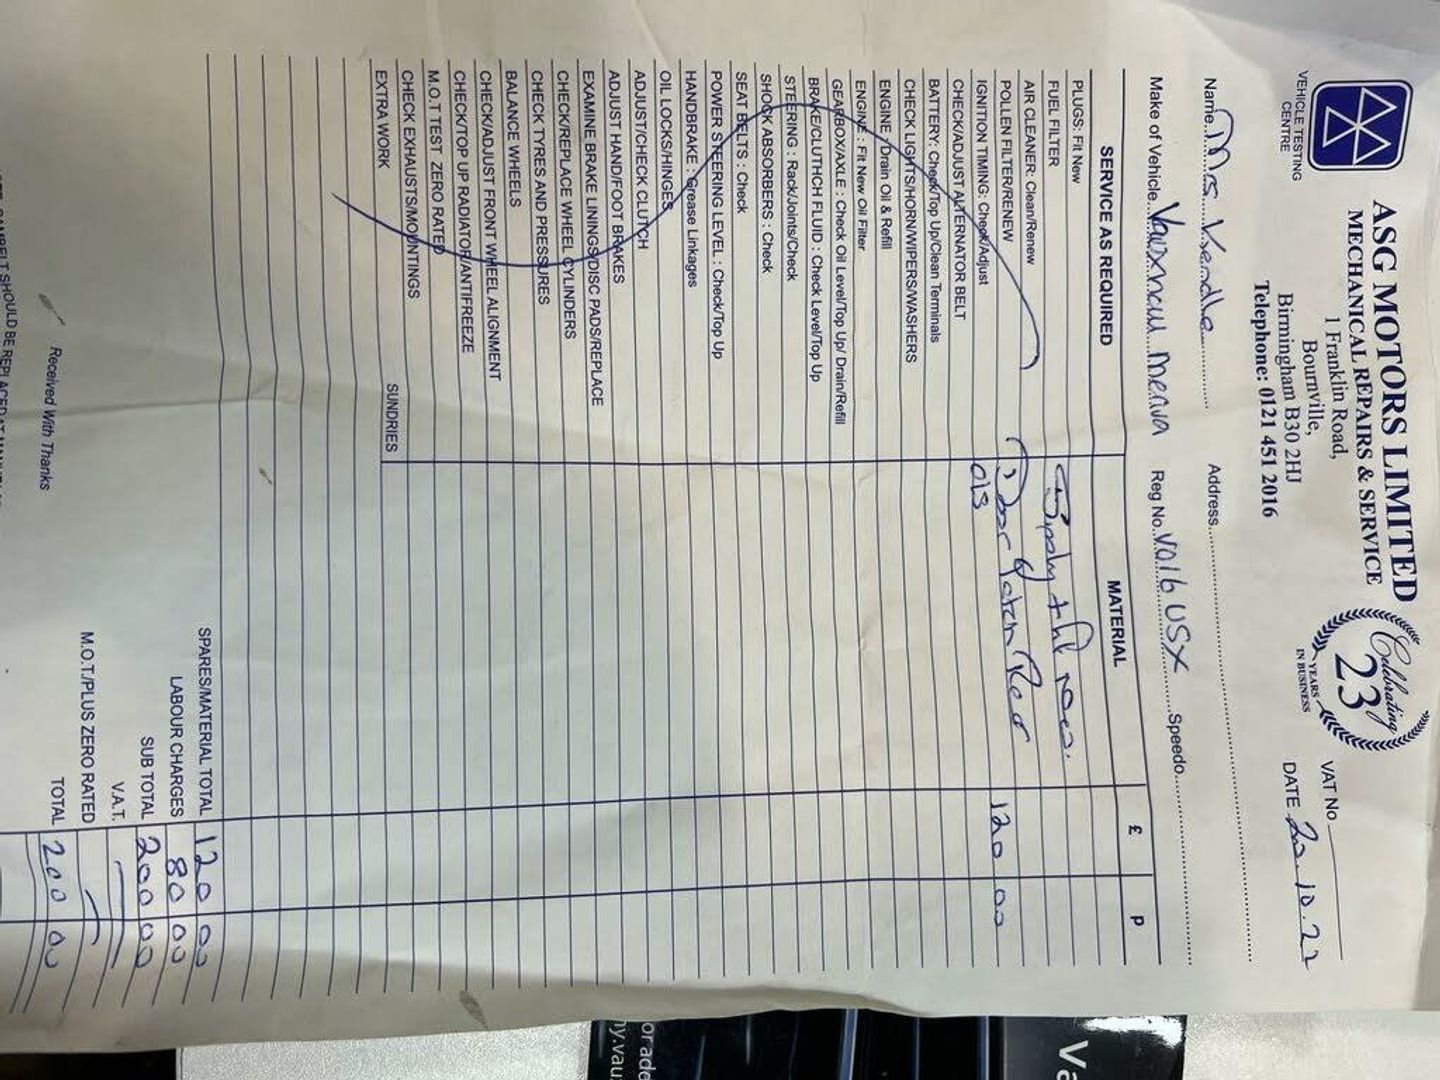 ASG MOTORS LIMITED
MECHANICAL REPAIRS & SERVICE
1 Franklin Road,
Bournville,
Birmingham B30 2HJ
Telephone: 0121 451 2016
VEHICLE TESTING
CENTRE
Celebrating
23
YEARS
IN BUSINESS
VAT No
DATE 20.10.22
Name Mrs
Address
Make of Vehicle Vauxhall Meriva Reg No. VO16 USX Speedo
SERVICE AS REQUIRED MATERIAL £ p
PLUGS: Fit New
FUEL FILTER Supply & fit new
AIR CLEANER: Clean/Renew
POLLEN FILTER/RENEW Door Rear 120 00
IGNITION TIMING: Check/Adjust O/S
CHECK/ADJUST ALTERNATOR BELT
BATTERY: Check/Top Up/Clean Terminals
CHECK LIGHTS/HORN/WIPERS/WASHERS
ENGINE : Drain Oil & Refill
ENGINE : Fit New Oil Filter
GEARBOX/AXLE : Check Oil Level/Top Up/ Drain/Refill
BRAKE/CLUTHCH FLUID : Check Level/Top Up
STEERING : Rack/Joints/Check
SHOCK ABSORBERS : Check
SEAT BELTS : Check
POWER STEERING LEVEL : Check/Top Up
HANDBRAKE : Grease Linkages
OIL LOCKS/HINGES
ADJUST/CHECK CLUTCH
ADJUST HAND/FOOT BRAKES
EXAMINE BRAKE LININGS/DISC PADS/REPLACE
CHECK/REPLACE WHEEL CYLINDERS
CHECK TYRES AND PRESSURES
BALANCE WHEELS
CHECK/ADJUST FRONT WHEEL ALIGNMENT
CHECK/TOP UP RADIATOR/ANTIFREEZE
M.O.T TEST ZERO RATED
CHECK EXHAUSTS/MOUNTINGS
EXTRA WORK SUNDRIES
SPARES/MATERIAL TOTAL 120 00
LABOUR CHARGES 80 00
SUB TOTAL 200 00
V.A.T.
M.O.T./PLUS ZERO RATED
TOTAL 200 00
Received With Thanks
SHOULD BE REPLACED AT